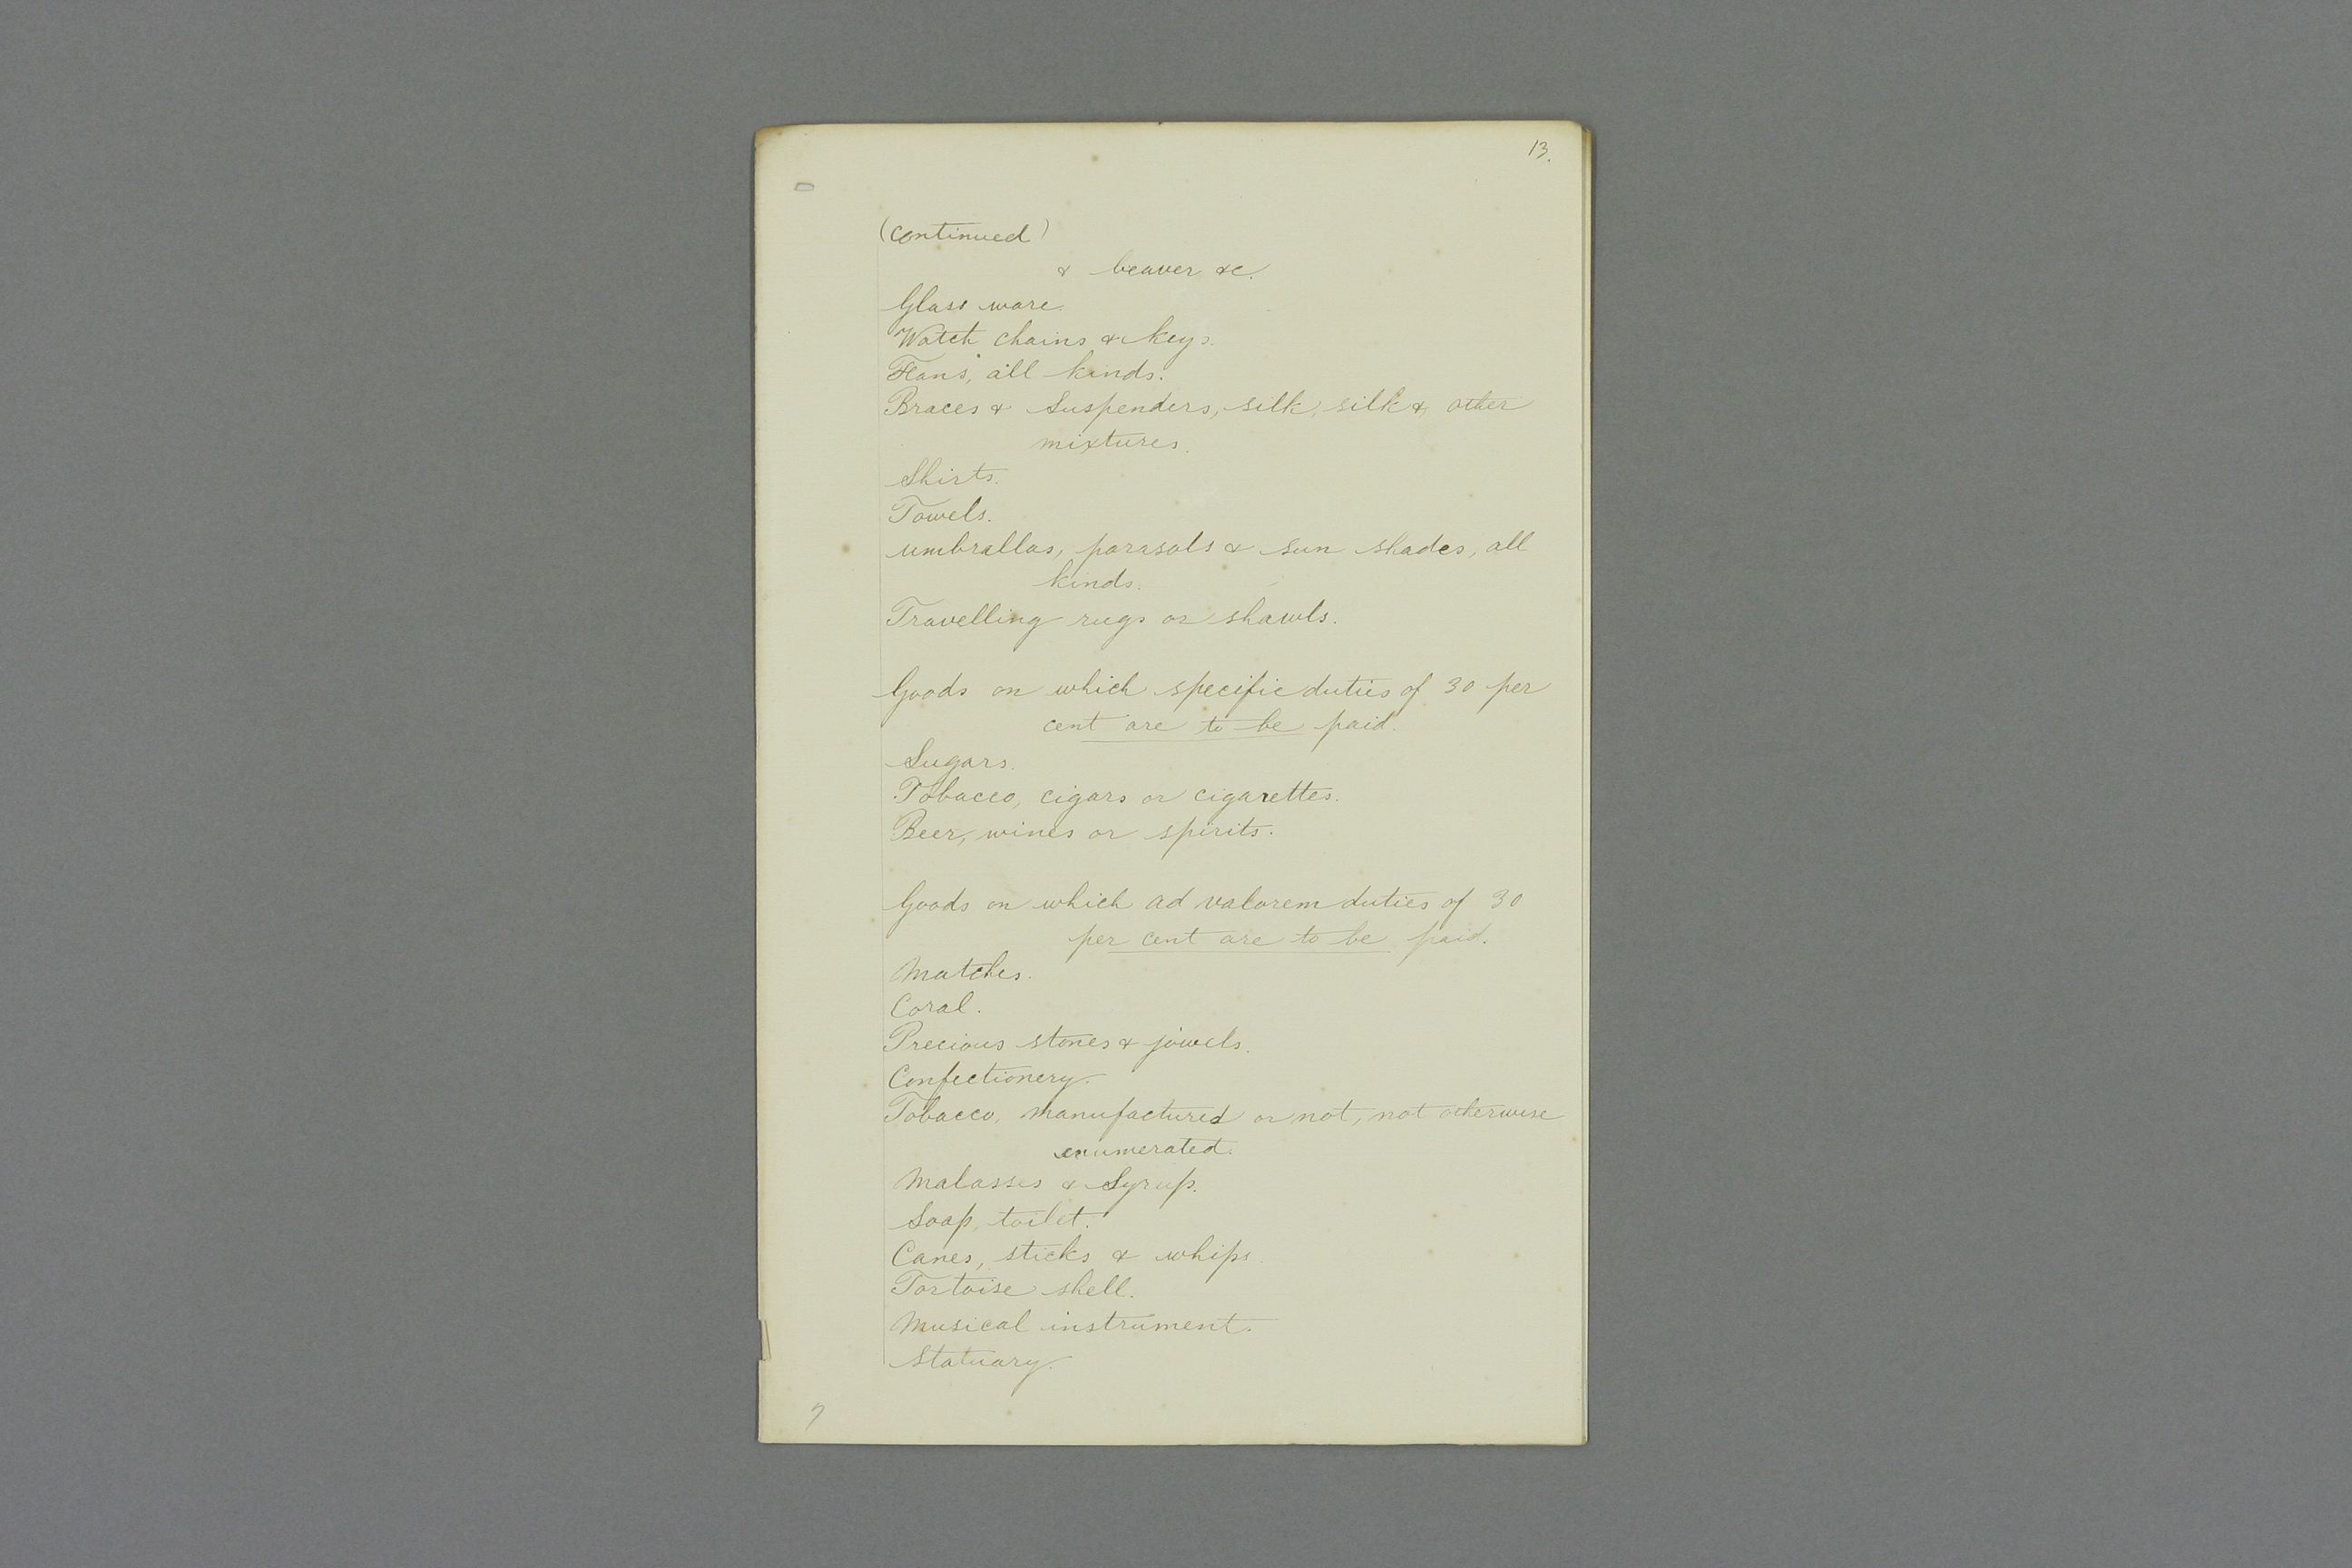 13.
(continued)
& beaver &c.
Glass ware.
Watch chains & keys.
Fans, all kinds.
Braces & Suspenders, silk, silk & other
mixtures.
Shirts.
Towels.
umbrallas, parasols & sun shades, all
kinds.
Travelling rugs or shawls.
Goods on which specific duties of 30 per
cent are to be paid.
Sugars.
Tobacco, cigars or cigarettes.
Beer, wines or spirits.
Goods on which ad valorem duties of 30
per cent are to be paid.
Matches.
Coral.
Precious stones & jewels.
Confectionery.
Tobacco, manufactured or not, not otherwise
enumerated.
Malasses & Syrup.
Soap, toilet.
Canes, sticks & whips.
Tortoise shell.
Musical instrument.
Statuary.